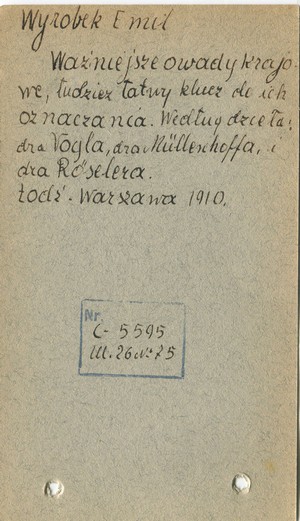 Wyrobek Emil
Ważniejsze owady krajo-
we, tudzież łatwy klucz do ich
oznaczania. Według dzieła:
dra Vogla, dra Müllenhoffa, i
dra Röselera.
Łódź - Warszawa 1910.
Nr.
C- 5595
26 № 75